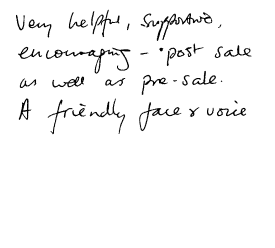 Very helpful, supportive,
encouraging - post sale
as well as pre-sale.
A friendly face & voice